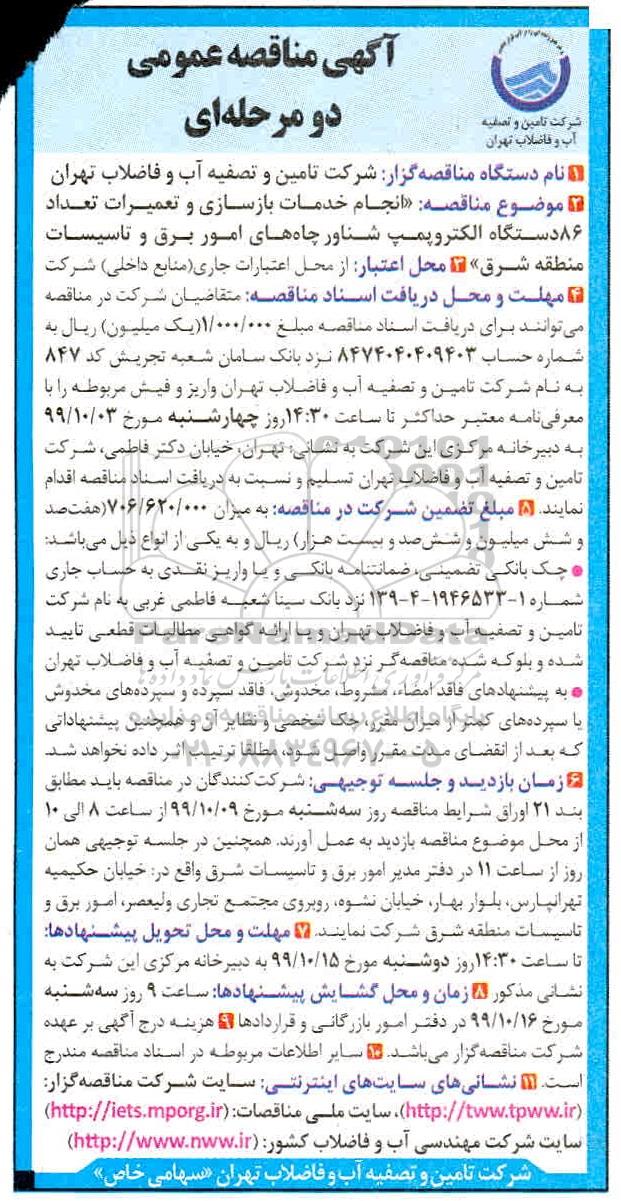 آگهی مناقصه عمومی
دو مرحله‌ای
شرکت تامین و تصفیه
آب و فاضلاب تهران
۱ نام دستگاه مناقصه‌گزار: شرکت تامین و تصفیه آب و فاضلاب تهران
۲ موضوع مناقصه: «انجام خدمات بازسازی و تعمیرات تعداد
۸۶دستگاه الکتروپمپ شناور چاه‌های امور برق و تاسیسات
منطقه شرق» ۳ محل اعتبار: از محل اعتبارات جاری(منابع داخلی) شرکت
۴ مهلت و محل دریافت اسناد مناقصه: متقاضیان شرکت در مناقصه
می‌توانند برای دریافت اسناد مناقصه مبلغ ۱/۰۰۰/۰۰۰(یک میلیون) ریال به
شماره حساب ۸۴۷۴۰۴۰۴۰۹۴۰۳ نزد بانک سامان شعبه تجریش کد ۸۴۷
به نام شرکت تامین و تصفیه آب و فاضلاب تهران واریز و فیش مربوطه را با
معرفی‌نامه معتبر حداکثر تا ساعت ۱۴:۳۰روز چهارشنبه مورخ ۹۹/۱۰/۰۳
به دبیرخانه مرکزی این شرکت به نشانی: تهران، خیابان دکتر فاطمی، شرکت
تامین و تصفیه آب و فاضلاب تهران تسلیم و نسبت به دریافت اسناد مناقصه اقدام
نمایند. ۵ مبلغ تضمین شرکت در مناقصه: به میزان ۷۰۶/۶۲۰/۰۰۰(هفت‌صد
و شش میلیون و شش‌صد و بیست هزار) ریال و به یکی از انواع ذیل می‌باشد:
• چک بانکی تضمینی، ضمانتنامه بانکی و یا واریز نقدی به حساب جاری
شماره ۱-۱۹۴۶۵۳۳-۴-۱۳۹ نزد بانک سینا شعبه فاطمی غربی به نام شرکت
تامین و تصفیه آب و فاضلاب تهران و یا ارائه گواهی مطالبات قطعی تایید
شده و بلوکه شده مناقصه‌گر نزد شرکت تامین و تصفیه آب و فاضلاب تهران
• به پیشنهادهای فاقد امضاء، مشروط، مخدوش، فاقد سپرده و سپرده‌های مخدوش
یا سپرده‌های کمتر از میزان مقرر، چک شخصی و نظایر آن و همچنین پیشنهاداتی
که بعد از انقضای مدت مقرر واصل شود، مطلقا ترتیب اثر داده نخواهد شد.
۶ زمان بازدید و جلسه توجیهی: شرکت‌کنندگان در مناقصه باید مطابق
بند ۲۱ اوراق شرایط مناقصه روز سه‌شنبه مورخ ۹۹/۱۰/۰۹ از ساعت ۸ الی ۱۰
از محل موضوع مناقصه بازدید به عمل آورند. همچنین در جلسه توجیهی همان
روز از ساعت ۱۱ در دفتر مدیر امور برق و تاسیسات شرق واقع در: خیابان حکیمیه
تهرانپارس، بلوار بهار، خیابان نشوه، روبروی مجتمع تجاری ولیعصر، امور برق و
تاسیسات منطقه شرق شرکت نمایند. ۷ مهلت و محل تحویل پیشنهادها:
تا ساعت ۱۴:۳۰روز دوشنبه مورخ ۹۹/۱۰/۱۵ به دبیرخانه مرکزی این شرکت به
نشانی مذکور ۸ زمان و محل گشایش پیشنهادها: ساعت ۹ روز سه‌شنبه
مورخ ۹۹/۱۰/۱۶ در دفتر امور بازرگانی و قراردادها ۹ هزینه درج آگهی بر عهده
شرکت مناقصه‌گزار می‌باشد. ۱۰ سایر اطلاعات مربوطه در اسناد مناقصه مندرج
است. ۱۱ نشانی‌های سایت‌های اینترنتی: سایت شرکت مناقصه‌گزار:
(http://tww.tpww.ir)، سایت ملی مناقصات: (http://iets.mporg.ir)
سایت شرکت مهندسی آب و فاضلاب کشور: (http://www.nww.ir)
شرکت تامین و تصفیه آب و فاضلاب تهران «سهامی خاص»
ParsNamadData
مرکز فرآوری اطلاعات پارس نماد داده‌ها
پایگاه اطلاع رسانی مناقصه و مزایده
۰۲۱-۸۸۳۴۹۶۷۰-۵